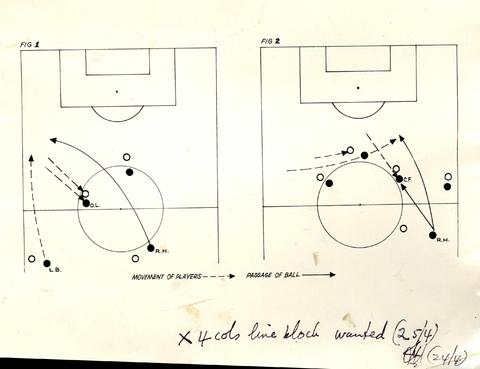 FIG 1
FIG 2
O.L.
C.F.
R.H.
R.H.
L.B.
MOVEMENT OF PLAYERS
PASSAGE OF BALL
X 4 cols line block wanted (25/4)
(24/4)